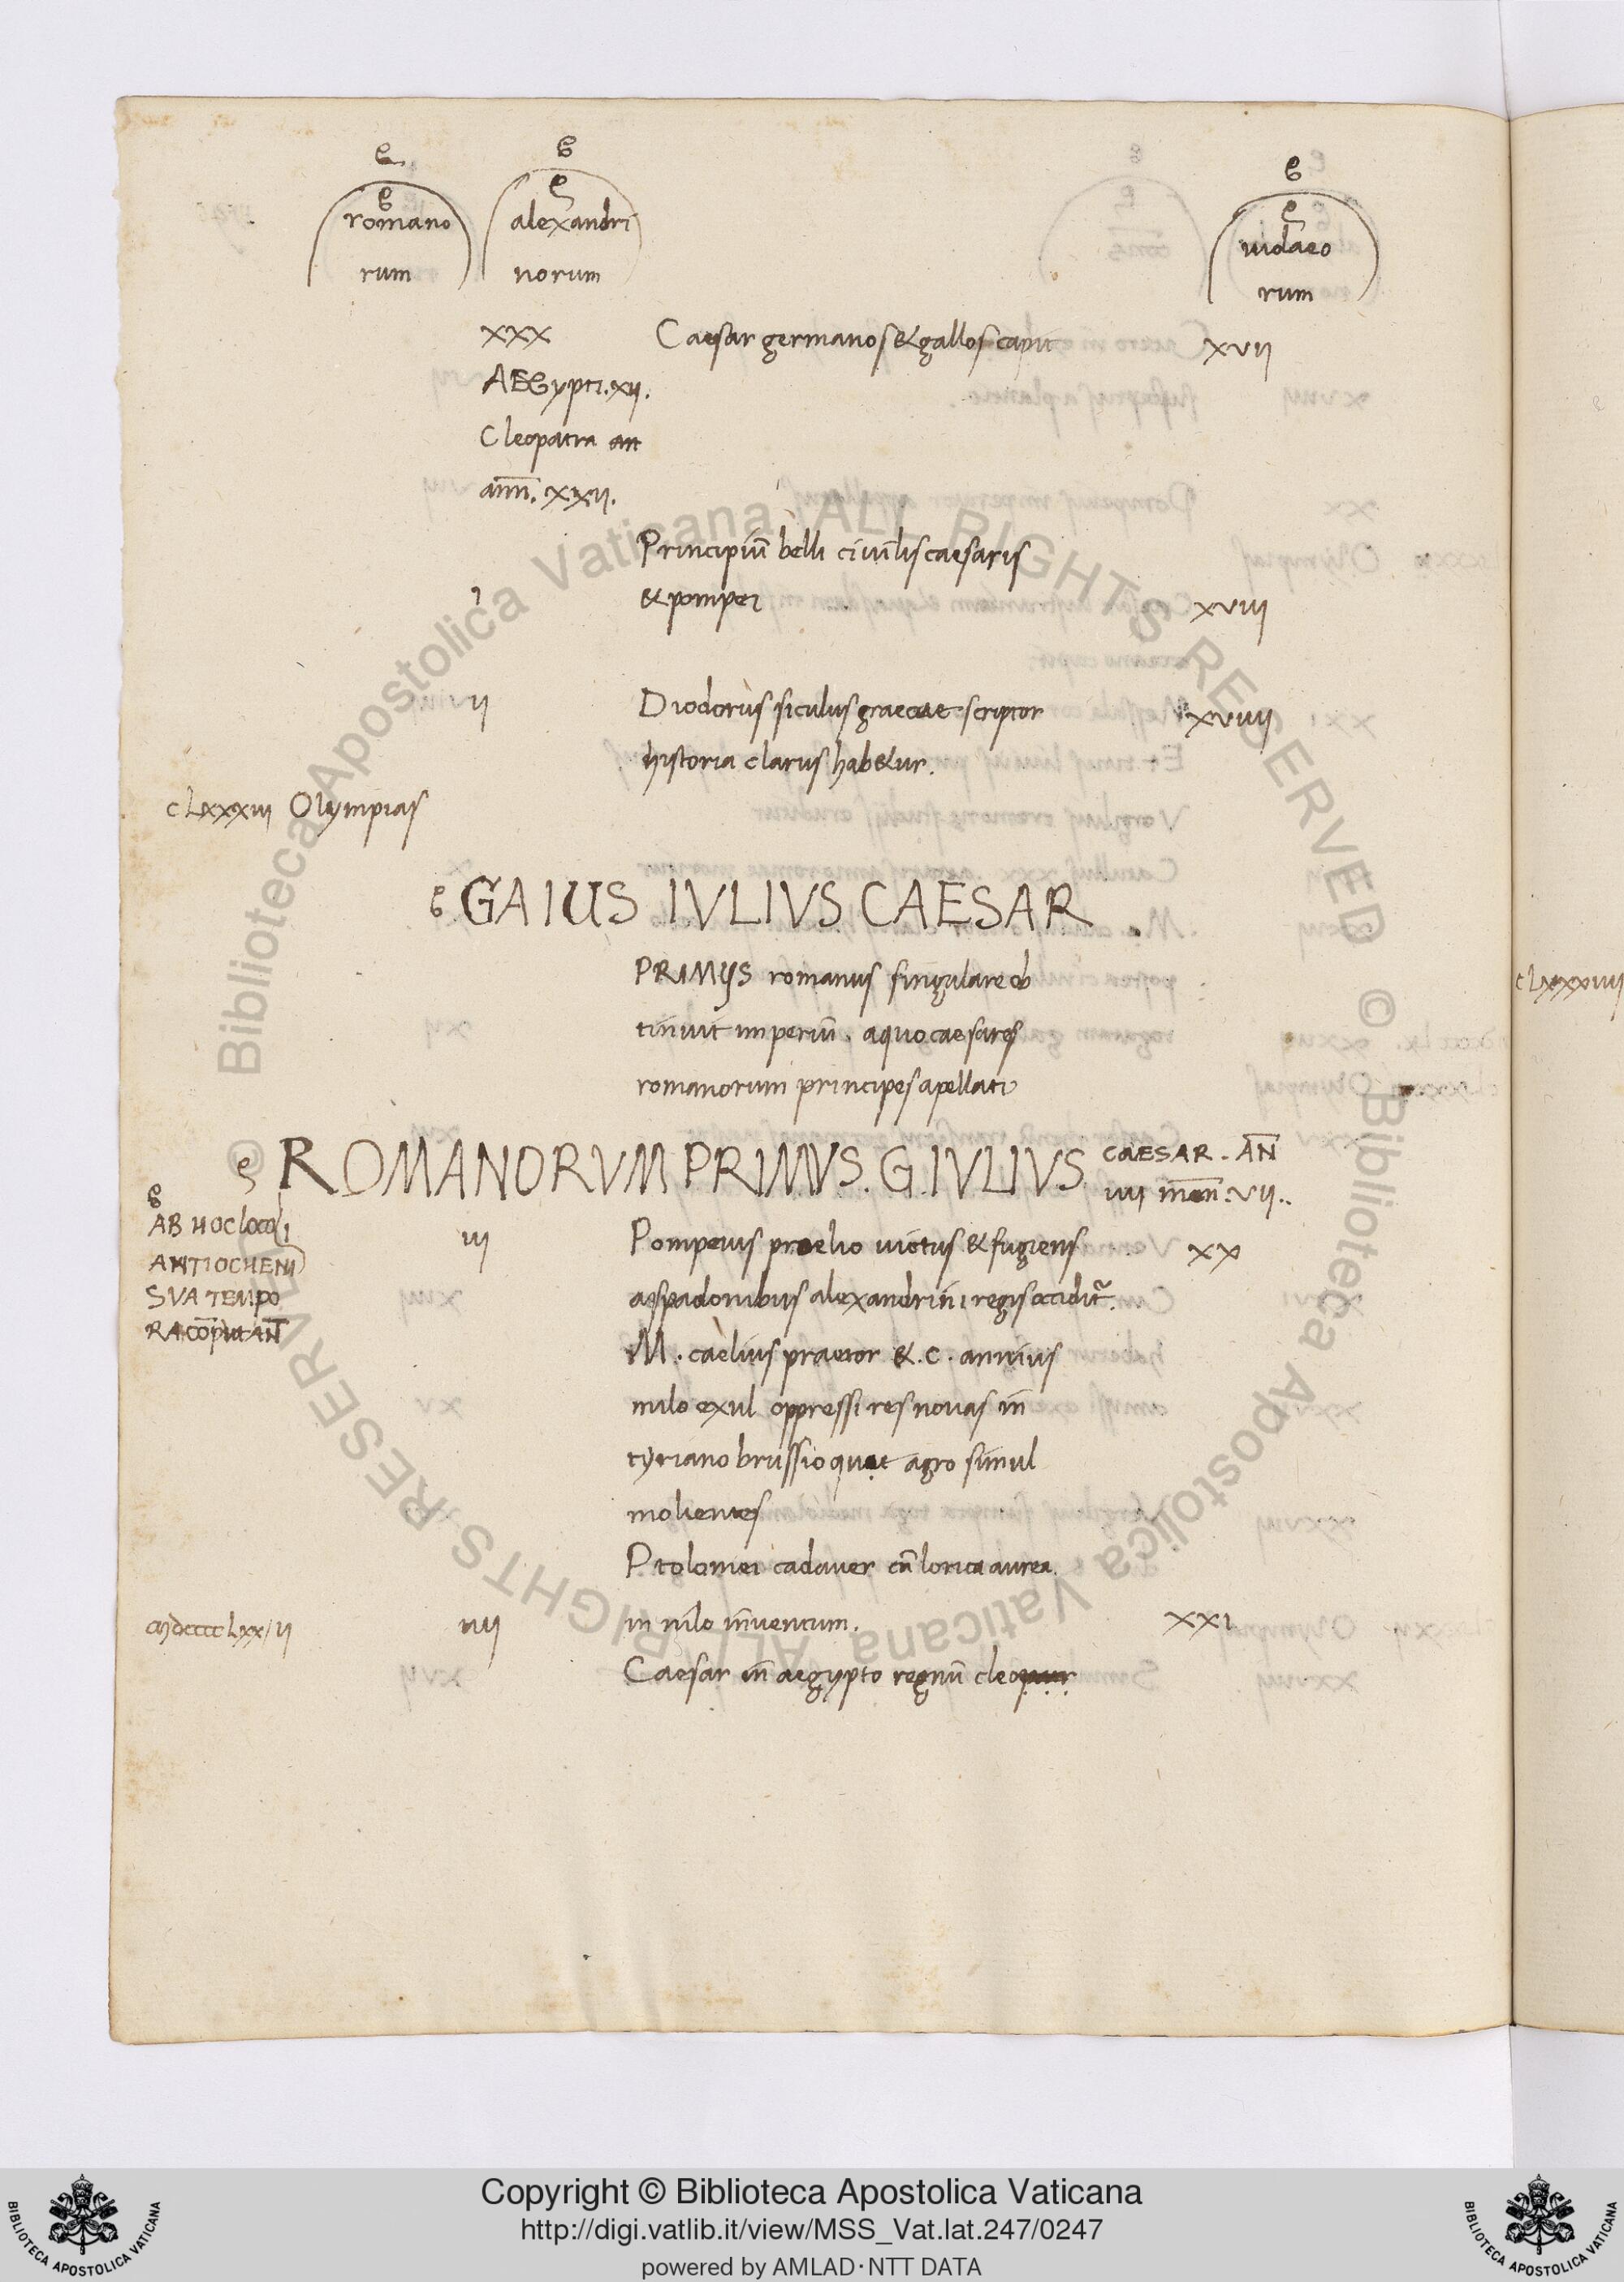 romano
rum
alexandri
norum
iudaeo
rum
xxx Caesar germanos & gallos capit xvii
AEGypti. xii.
Cleopatra an
ann̄. xxii.
Principiū belli ciuilis caesaris
i & pompei xviii
ii Diodorus siculus graecae scriptor xviiii
historia clarus hab&ur.
cLxxxiii Olympias
GAIUS IVLIVS CAESAR
PRIMVS romanus singulare ob
tinuit imperiū. a quo caesares
romanorum principes apellati
ROMANORVM PRIMVS. G. IVLIVS CAESAR. AN̄
iiii men̄. vii..
AB HOC loco
ANTIOCHENI
SVA TEMPO
RA cōputAN̄T
iii Pompeius proelio uictus & fugiens xx
a spadonibus alexandrini regis occidit᷑.
M. caelius praetor &. c. annius
milo exul oppressi res nouas in
tyriano brussioquae agro simul
molientes
Ptolomei cadauer cū lorica aurea
iiii in nilo inuentum. xxi
Caesar in aegypto regnū cleo
cLxxxiiii
Copyright © Biblioteca Apostolica Vaticana
http://digi.vatlib.it/view/MSS_Vat.lat.247/0247
powered by AMLAD·NTT DATA
BIBLIOTECA APOSTOLICA VATICANA
BIBLIOTECA APOSTOLICA VATICANA
© Biblioteca Apostolica Vaticana ALL RIGHTS RESERVED
© Biblioteca Apostolica Vaticana ALL RIGHTS RESERVED